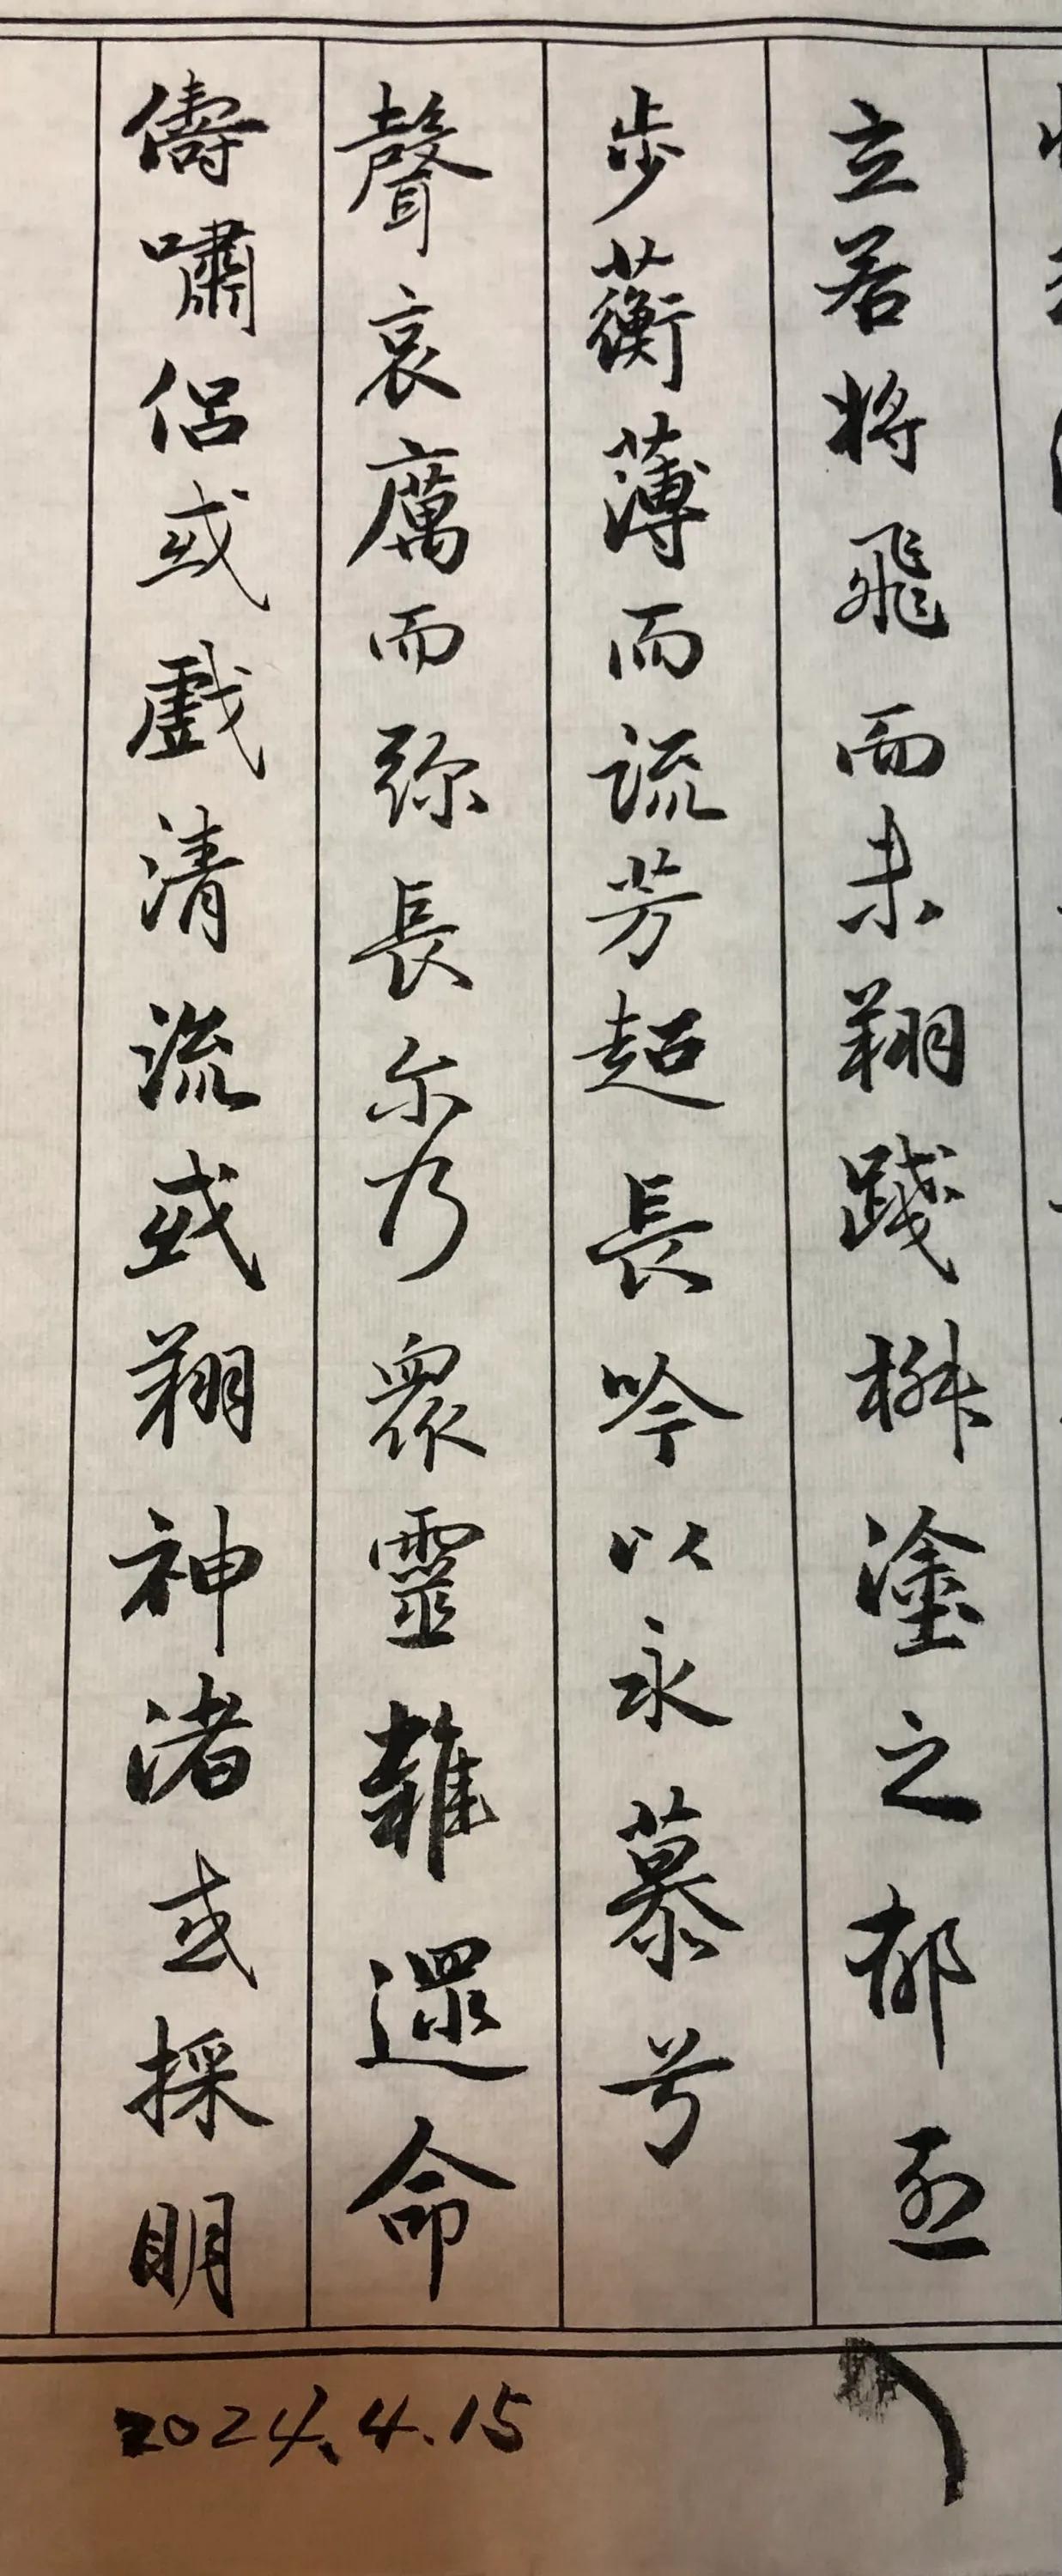 立若将飛而未翔踐椒塗之郁烈
步蘅薄而流芳超長吟以永慕兮
聲哀厲而弥長尔乃衆靈雜遝命
儔嘯侶或戲清流或翔神渚或採明
2024.4.15